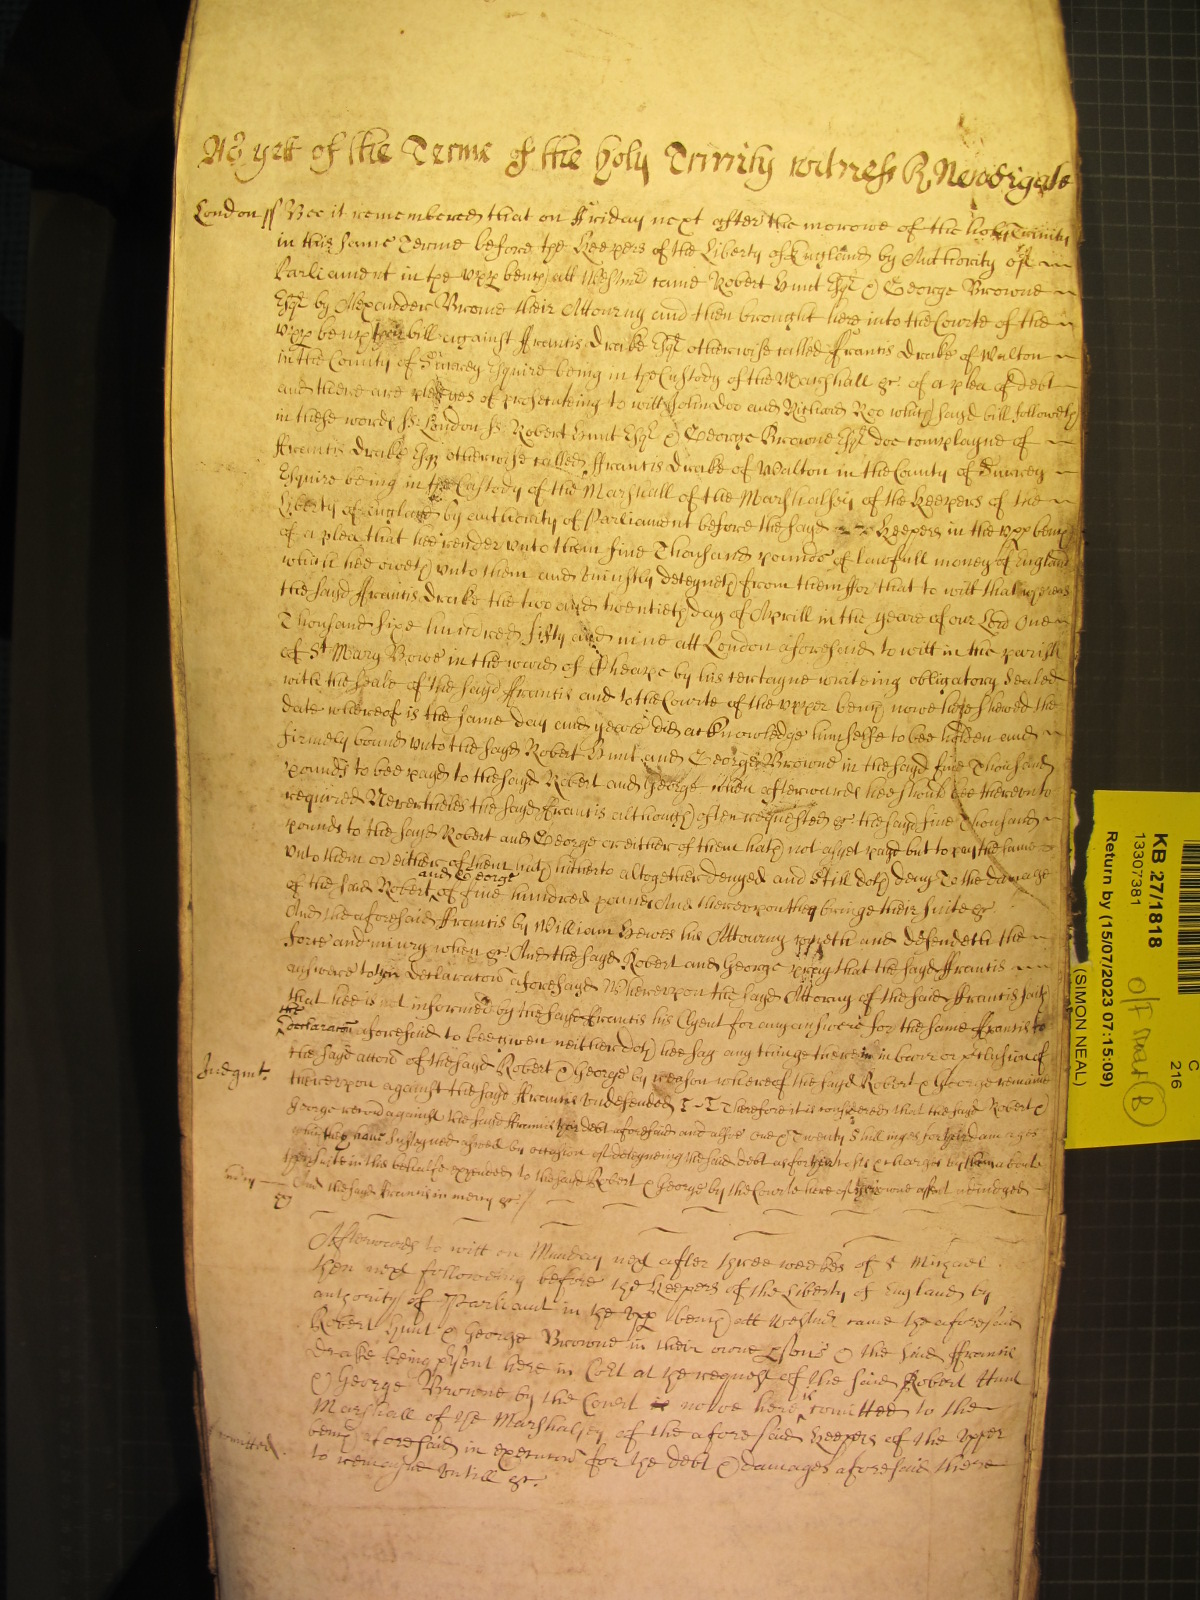 As yett of the Terme of the holy Trinity witness R Newdigate
London ss Bee it remembered that on Friday next after the morrowe of the holy Trinity
in this same Terme before the Keepers of the Liberty of England by Authority of
Parliament in the upp bench att Westmr came Robert Hunt Esqr & George Browne
Esqr by Alexander Brome their Attourny and then brought here into the Courte of the
upp bench their bill against Francis Drake Esqr otherwise called Francis Drake of Walton
in the County of Surrey Esquire being in the Custody of the Marshall &c of a plea of debt
and there are pledges of prosecuteing to witt John Doo and Richard Roo which sayd bill followeth
in these words ss London ss Robert Hunt Esqr & George Browne Esqr doe complayne of
Francis Drake Esqr otherwise called Francis Drake of Walton in the County of Surrey
Esquire being in the Custody of the Marshall of the Marshalsey of the Keepers of the
Liberty of England by authority of Parliament before the sayd Keepers in the upp bench
of a plea that hee render unto them five Thousand pounds of lawfull money of England
which hee oweth unto them and uniustly deteyneth from them for that to witt that whereas
the sayd Francis Drake the two and twentieth day of Aprill in the yeare of our Lord One
Thousand sixe hundred fifty and nine att London aforesaid to witt in the parish
of St Mary Bowe in the ward of Cheape by his certayne writeing obligatory sealed
with the seale of the sayd Francis and to the Courte of the upper bench nowe here shewed the
date whereof is the same day and yeare did acknowledge himselfe to bee holden and
firmely bound unto the sayd Robert Hunt and George Browne in the sayd five Thousand
pounds to bee payd to the sayd Robert and George when afterwards hee should bee thereunto
required Neverthelesse the sayd Francis although often requested &c the sayd five thousand
pounds to the sayd Robert and George or either of them hath not as yet payd but to pay the same
unto them or either of them hath hitherto altogether denyed and still doth deny To the damage
of the said Robert and George of five hundred pounds And thereupon they bringe their suite &c
And the aforesaid Francis by William Hewes his Attourny cometh and defendeth the
force and iniury when &c And the sayd Robert and George pray that the sayd Francis
answere to their declaracon aforesayd Whereupon the sayd Attorny of the said Francis saith
that hee is not informed by the sayd Francis his Clyent for any answere for the same Francis to
the Declaracon aforesaid to bee given neither doth hee say any thinge therein in barr or p'clusion of
Iudgmt. the sayd accon of the sayd Robert & George by reason whereof the sayd Robert & George remaine
thereupon against the sayd Francis undefended Therefore it is considered that the sayd Robert &
George recover against the said Francis their debt aforesaid and alsoe One & Twenty Shillinges for their damages
which they have susteyned aswell by occasion of deteyneing the said debt as for their costs & charges by them about
their suite in this behalfe expended to the said Robert & George by the Courte here of their owne assent adiudged
mercy And the sayd Francis in mercy &c
Afterwards to witt on Munday next after three weekes of St Michael
then next following before the Keepers of the Liberty of England by
authority of Parliamt in the upp bench att Westmr came the aforesaid
Robert Hunt & George Browne in their owne psons & the said Francis
Drake being psent here in Cort at the request of the said Robert Hunt
& George Browne by the Court nowe here is comitted to the
Marshall of the Marshalsey of the aforesaid Keepers of the upper
comitted bench aforesaid in execution for the debt & damages aforesaid there
to remayne untill &c.
KB 27/1818
13307381
Return by (15/07/2023 07:15:09)
(SIMON NEAL)
C
216
B